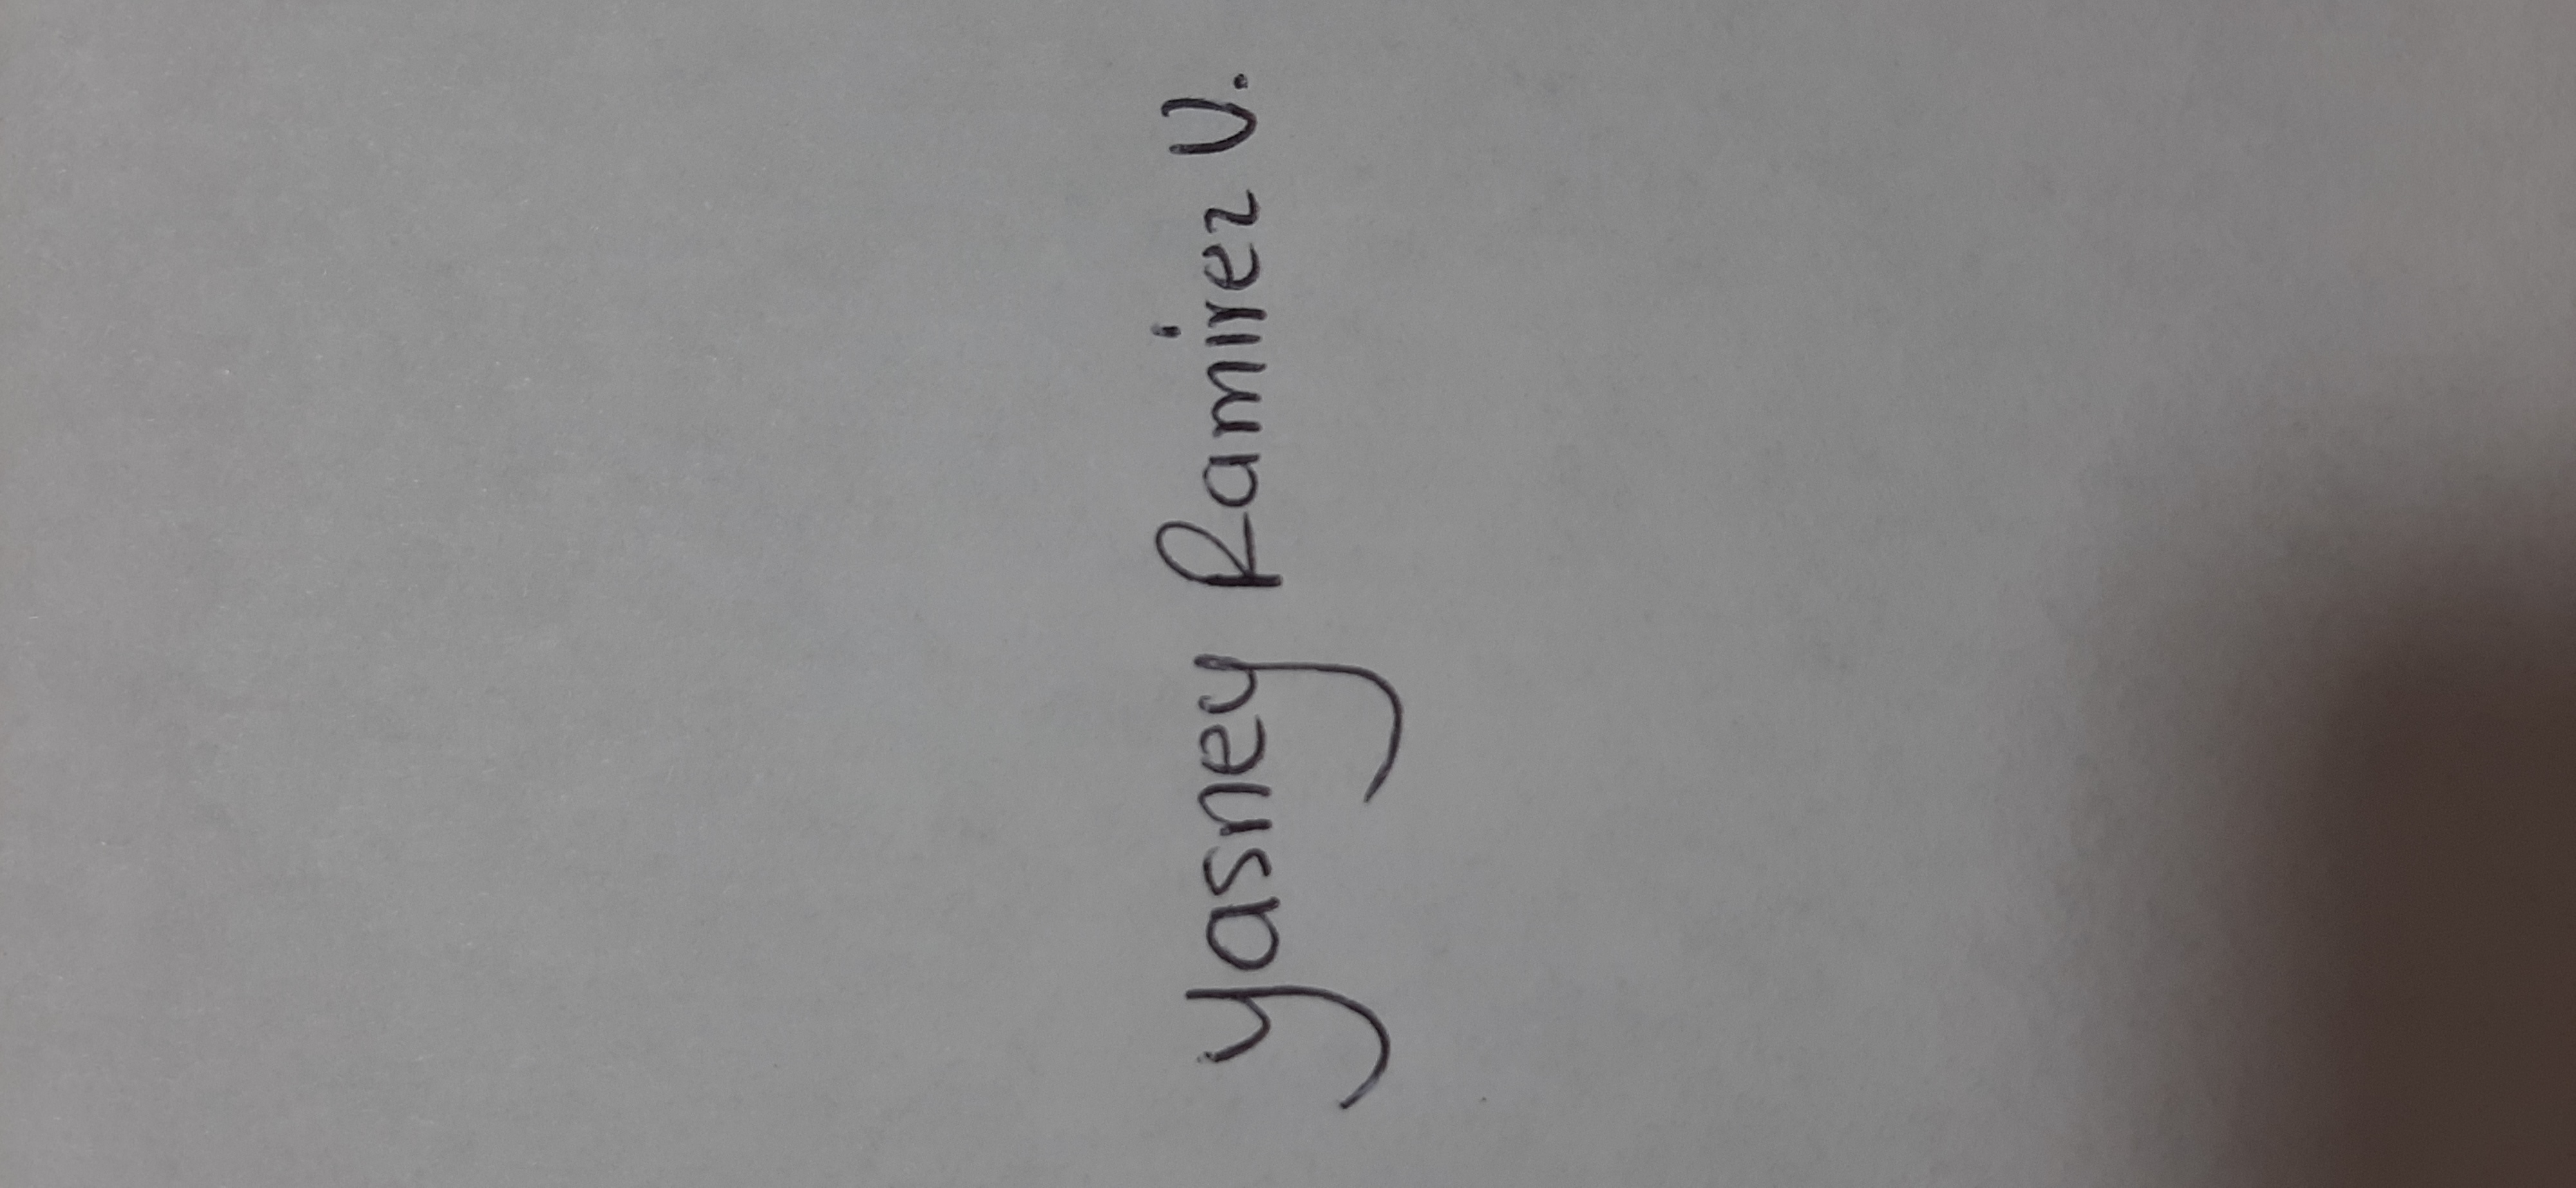 Yasney Ramirez V.